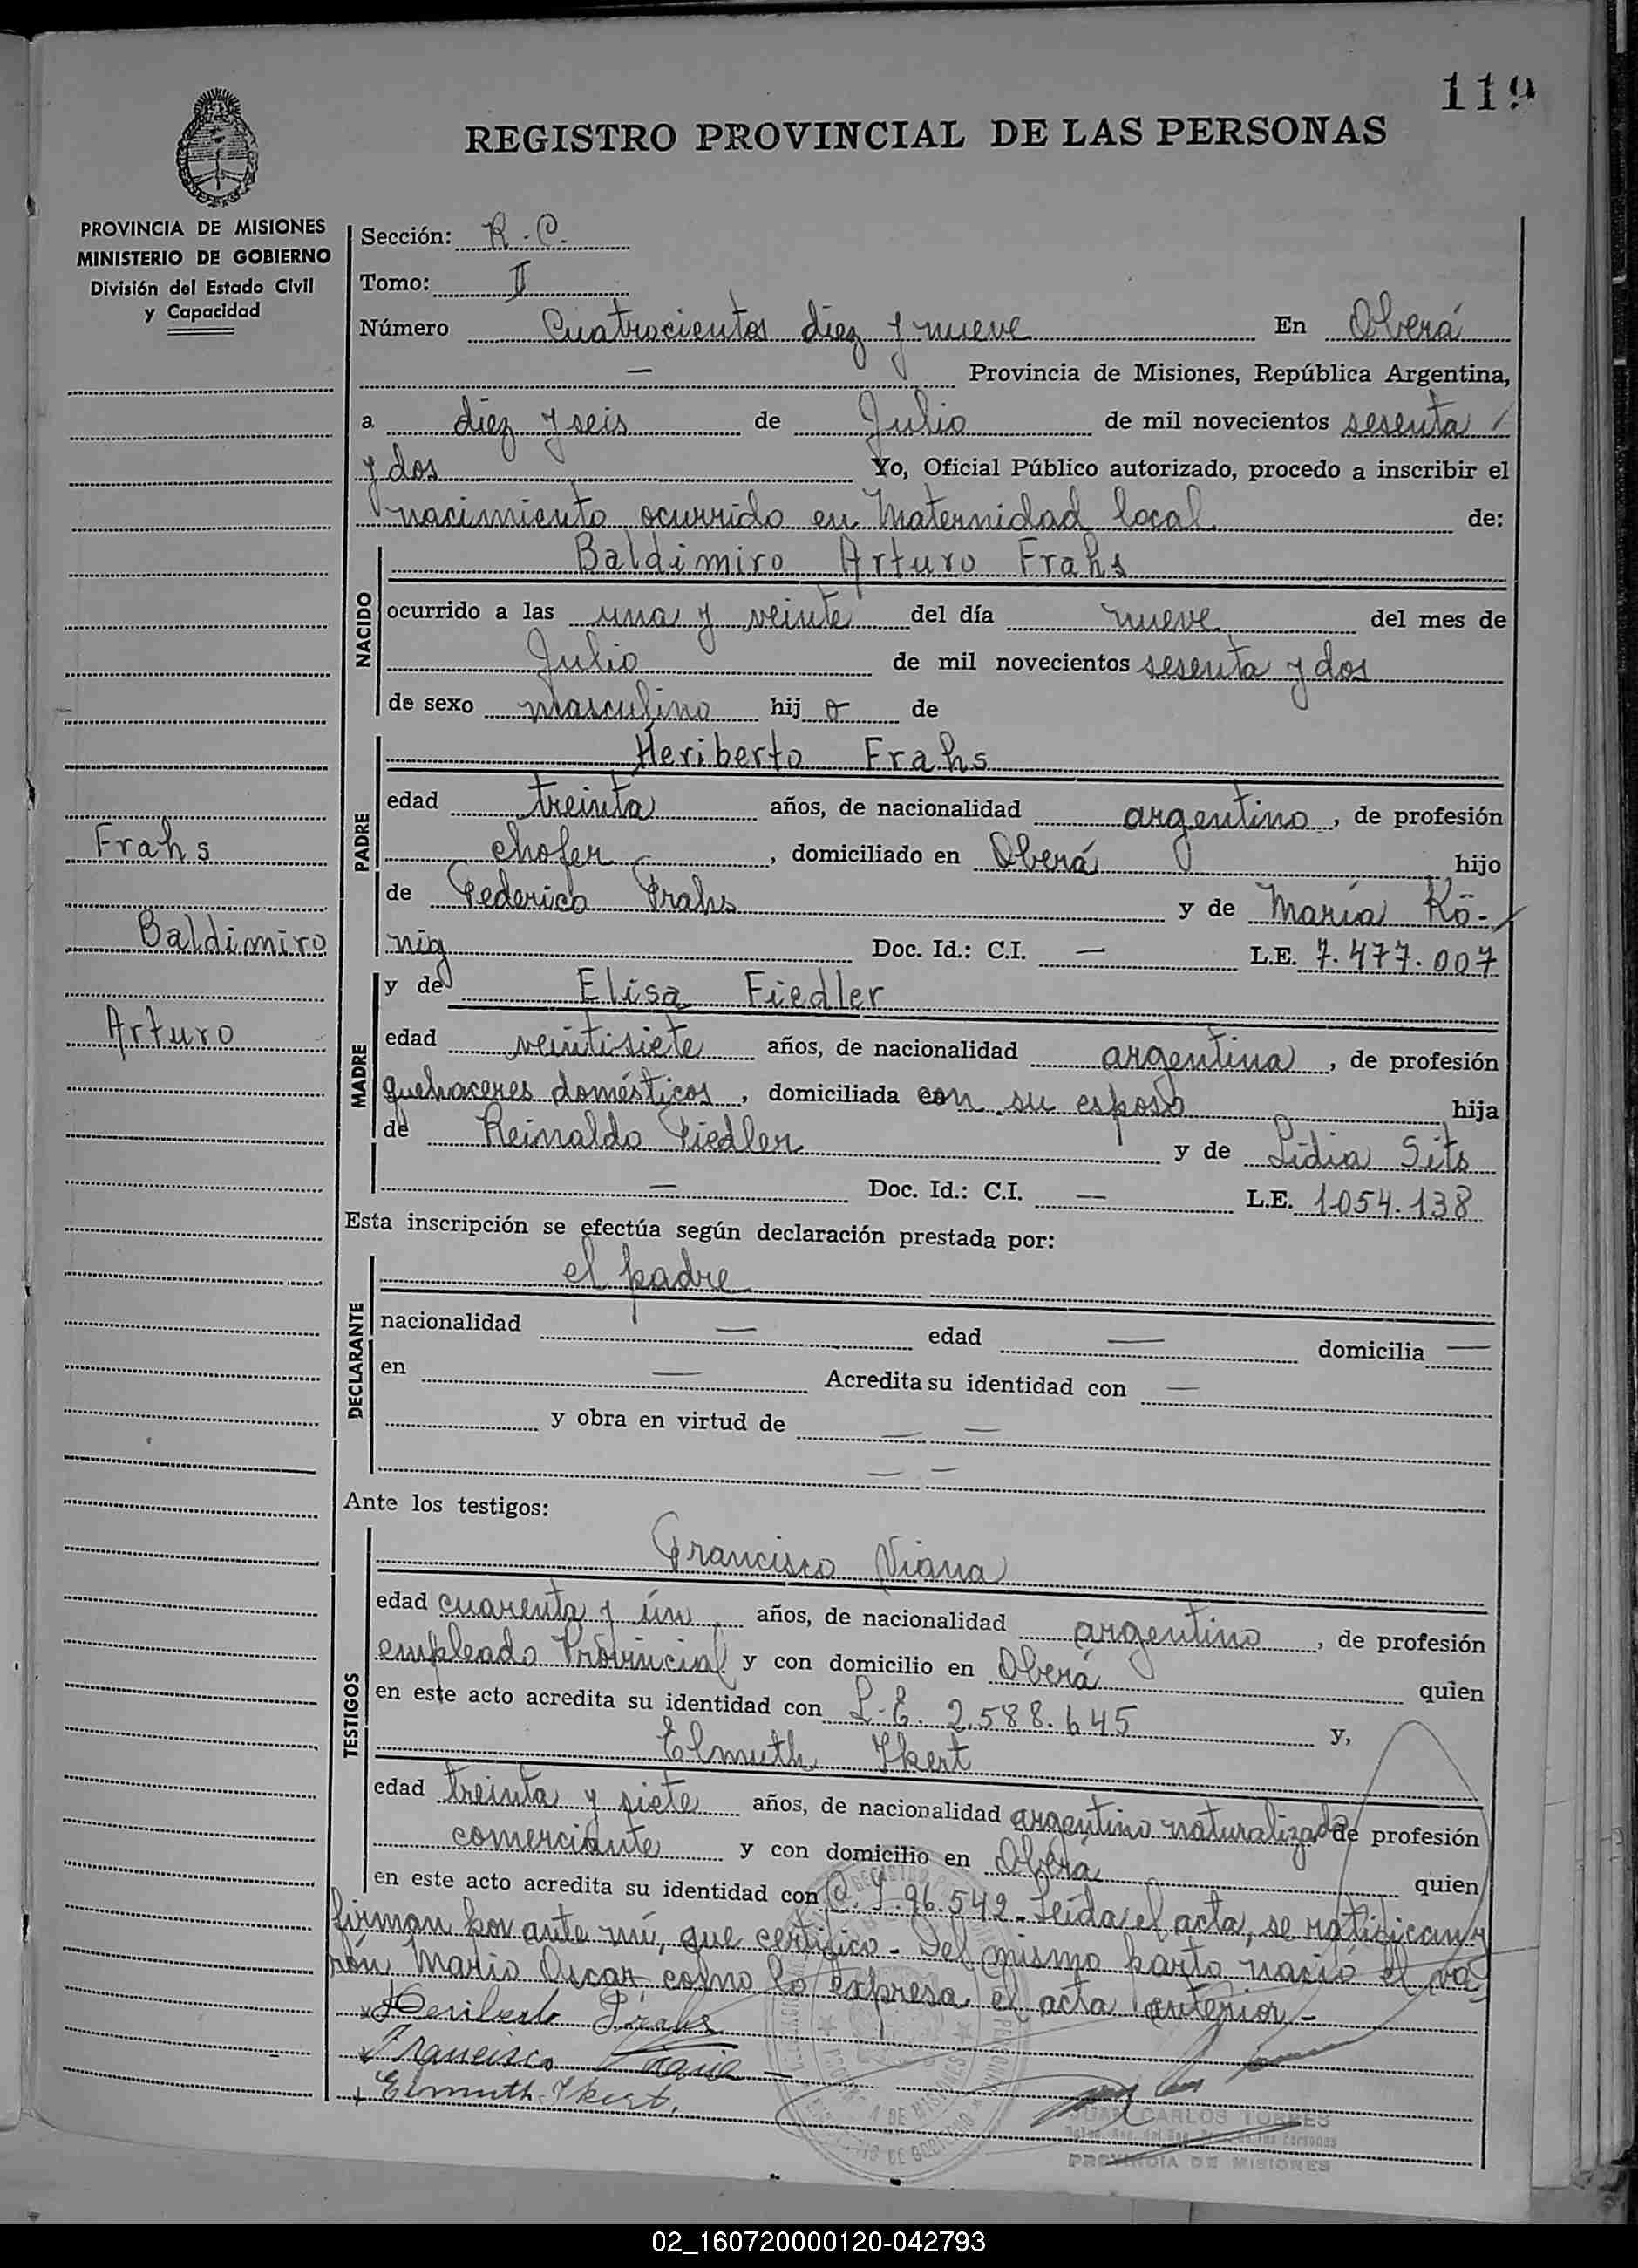 119
REGISTRO PROVINCIAL DE LAS PERSONAS
PROVINCIA DE MISIONES
MINISTERIO DE GOBIERNO
División del Estado Civil
y Capacidad
Sección: R. C.
Tomo: II
Número Cuatrocientos diez y nueve En Oberá
— Provincia de Misiones, República Argentina,
a diez y seis de Julio de mil novecientos sesenta
y dos Yo, Oficial Público autorizado, procedo a inscribir el
nacimiento ocurrido en Maternidad local de:
NACIDO
Baldimiro Arturo Frahs
ocurrido a las una y veinte del día nueve del mes de
Julio de mil novecientos sesenta y dos
de sexo masculino hij o de
PADRE
Heriberto Frahs
edad treinta años, de nacionalidad argentino, de profesión
chofer, domiciliado en Oberá hijo
de Federico Frahs y de María Kö-
nig Doc. Id.: C.I. — L.E. 7.477.007
Frahs
Baldimiro
Arturo
MADRE
y de Elisa Fiedler
edad veintisiete años, de nacionalidad argentina, de profesión
quehaceres domésticos, domiciliada con su esposo hija
de Reinaldo Fiedler y de Lidia Sits
— Doc. Id.: C.I. — L.E. 1.054.138
Esta inscripción se efectúa según declaración prestada por:
DECLARANTE
el padre
nacionalidad — edad — domicilia —
en — Acredita su identidad con —
y obra en virtud de — —
— —
Ante los testigos:
TESTIGOS
Francisco Viana
edad cuarenta y ún años, de nacionalidad argentino, de profesión
empleado Provincial y con domicilio en Oberá quien
en este acto acredita su identidad con L.E. 2.588.645 y,
Elmuth Ikert
edad treinta y siete años, de nacionalidad argentino naturalizado de profesión
comerciante y con domicilio en Oberá quien
en este acto acredita su identidad con C.I. 96.542.- Leída el acta, se ratifican y
firman por ante mí, que certifico.- Del mismo parto nació el va-
rón Mario Oscar, como lo expresa el acta anterior.-
Heriberto Frahs
Francisco Viana
Elmuth Ikert.
JUAN CARLOS TORRES
PROVINCIA DE MISIONES
02_160720000120-042793